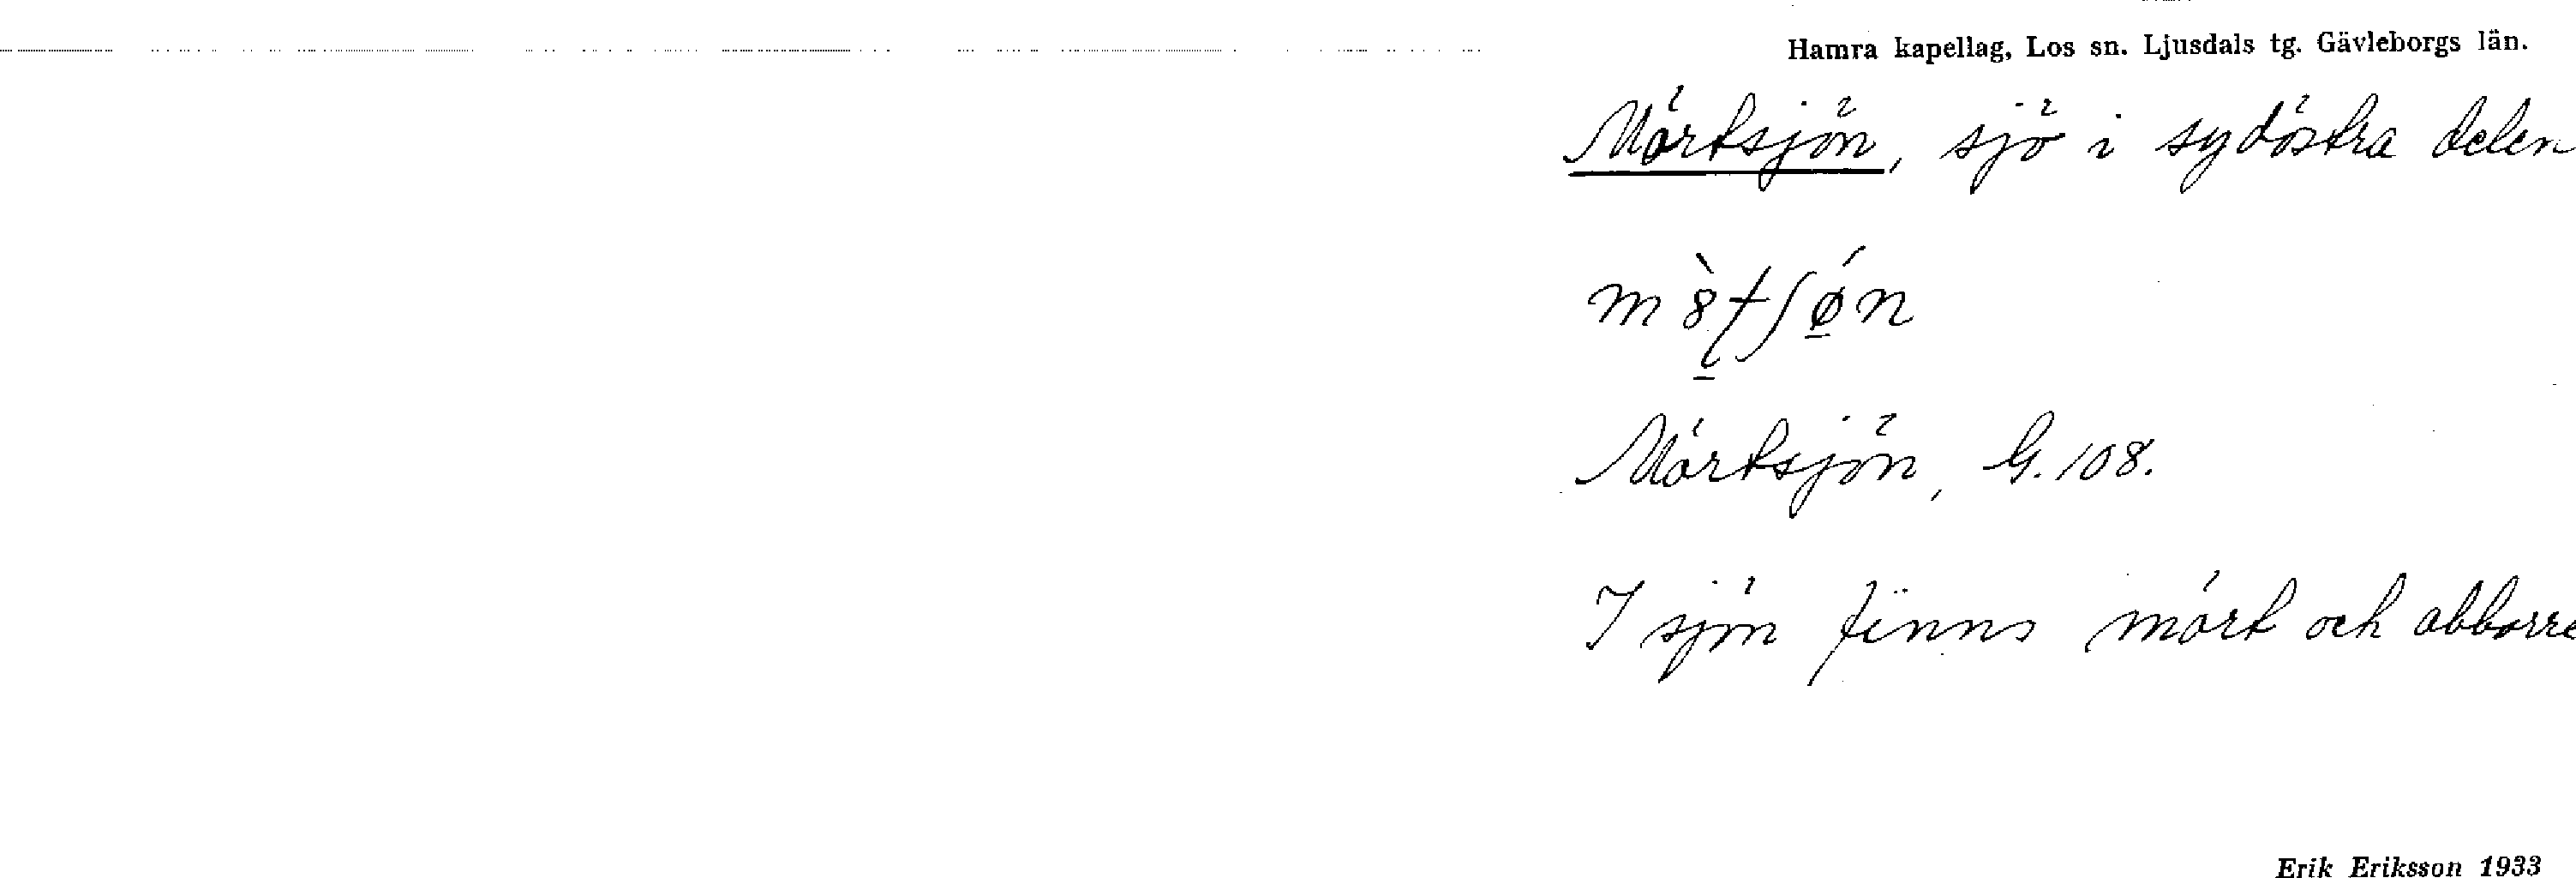 Hamra kapellag, Los sn. Ljusdals tg. Gävleborgs län.
Mörtsjön, sjö i sydöstra delen
Mörtsjön, G. 108.
I sjön finns mört och abborre
Erik Eriksson 1933